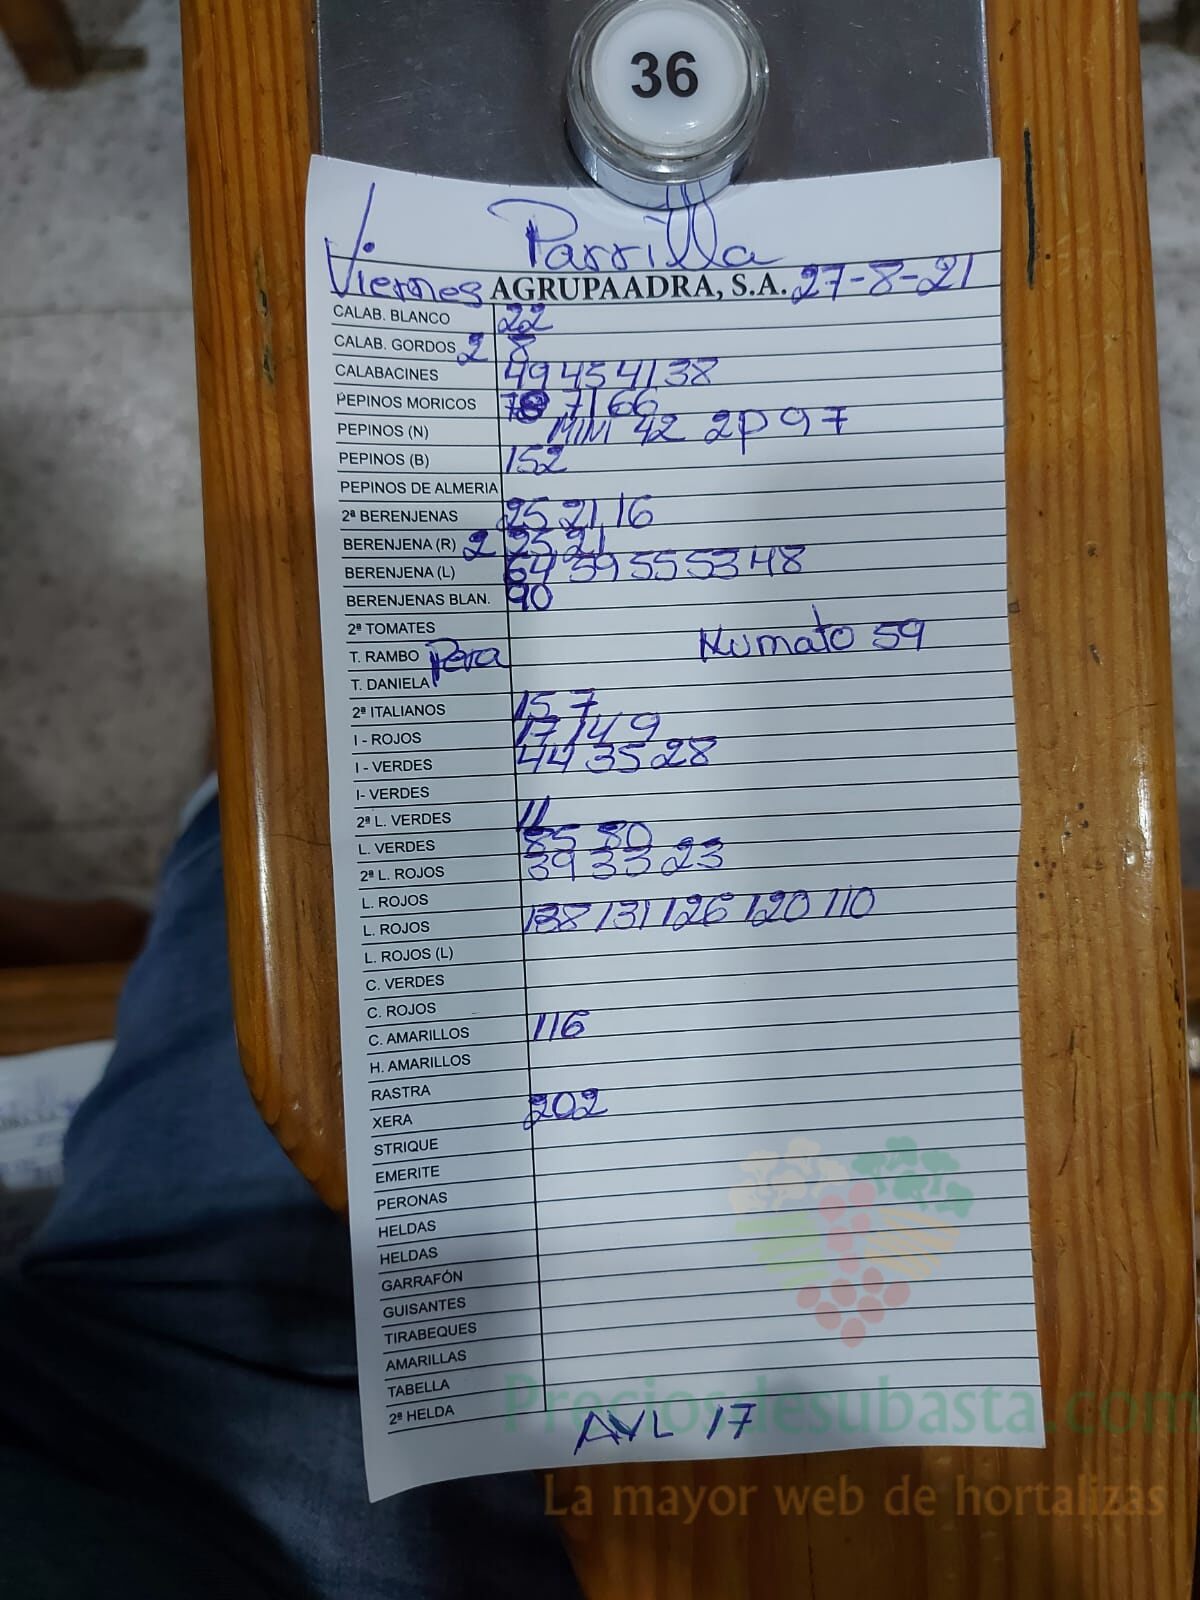 36
Parrilla
Viernes AGRUPAADRA, S.A. 27-8-21
CALAB. BLANCO 22
CALAB. GORDOS 2 8
CALABACINES 49 45 41 38
PEPINOS MORICOS 71 66
PEPINOS (N) MINI 42 2P 97
PEPINOS (B) 152
PEPINOS DE ALMERIA
2ª BERENJENAS 25 21 16
BERENJENA (R) 2 25 21
BERENJENA (L) 64 59 55 53 48
BERENJENAS BLAN. 90
2ª TOMATES
T. RAMBO Pera Kumato 59
T. DANIELA
2ª ITALIANOS 15 7
I - ROJOS 17 14 9
I - VERDES 44 35 28
I- VERDES
2ª L. VERDES 11
L. VERDES 85 80
2ª L. ROJOS 39 33 23
L. ROJOS
L. ROJOS 138 131 126 120 110
L. ROJOS (L)
C. VERDES
C. ROJOS
C. AMARILLOS 116
H. AMARILLOS
RASTRA
XERA 202
STRIQUE
EMERITE
PERONAS
HELDAS
HELDAS
GARRAFÓN
GUISANTES
TIRABEQUES
AMARILLAS
TABELLA
2ª HELDA
AVL 17
Preciosdesubasta.com
La mayor web de hortalizas